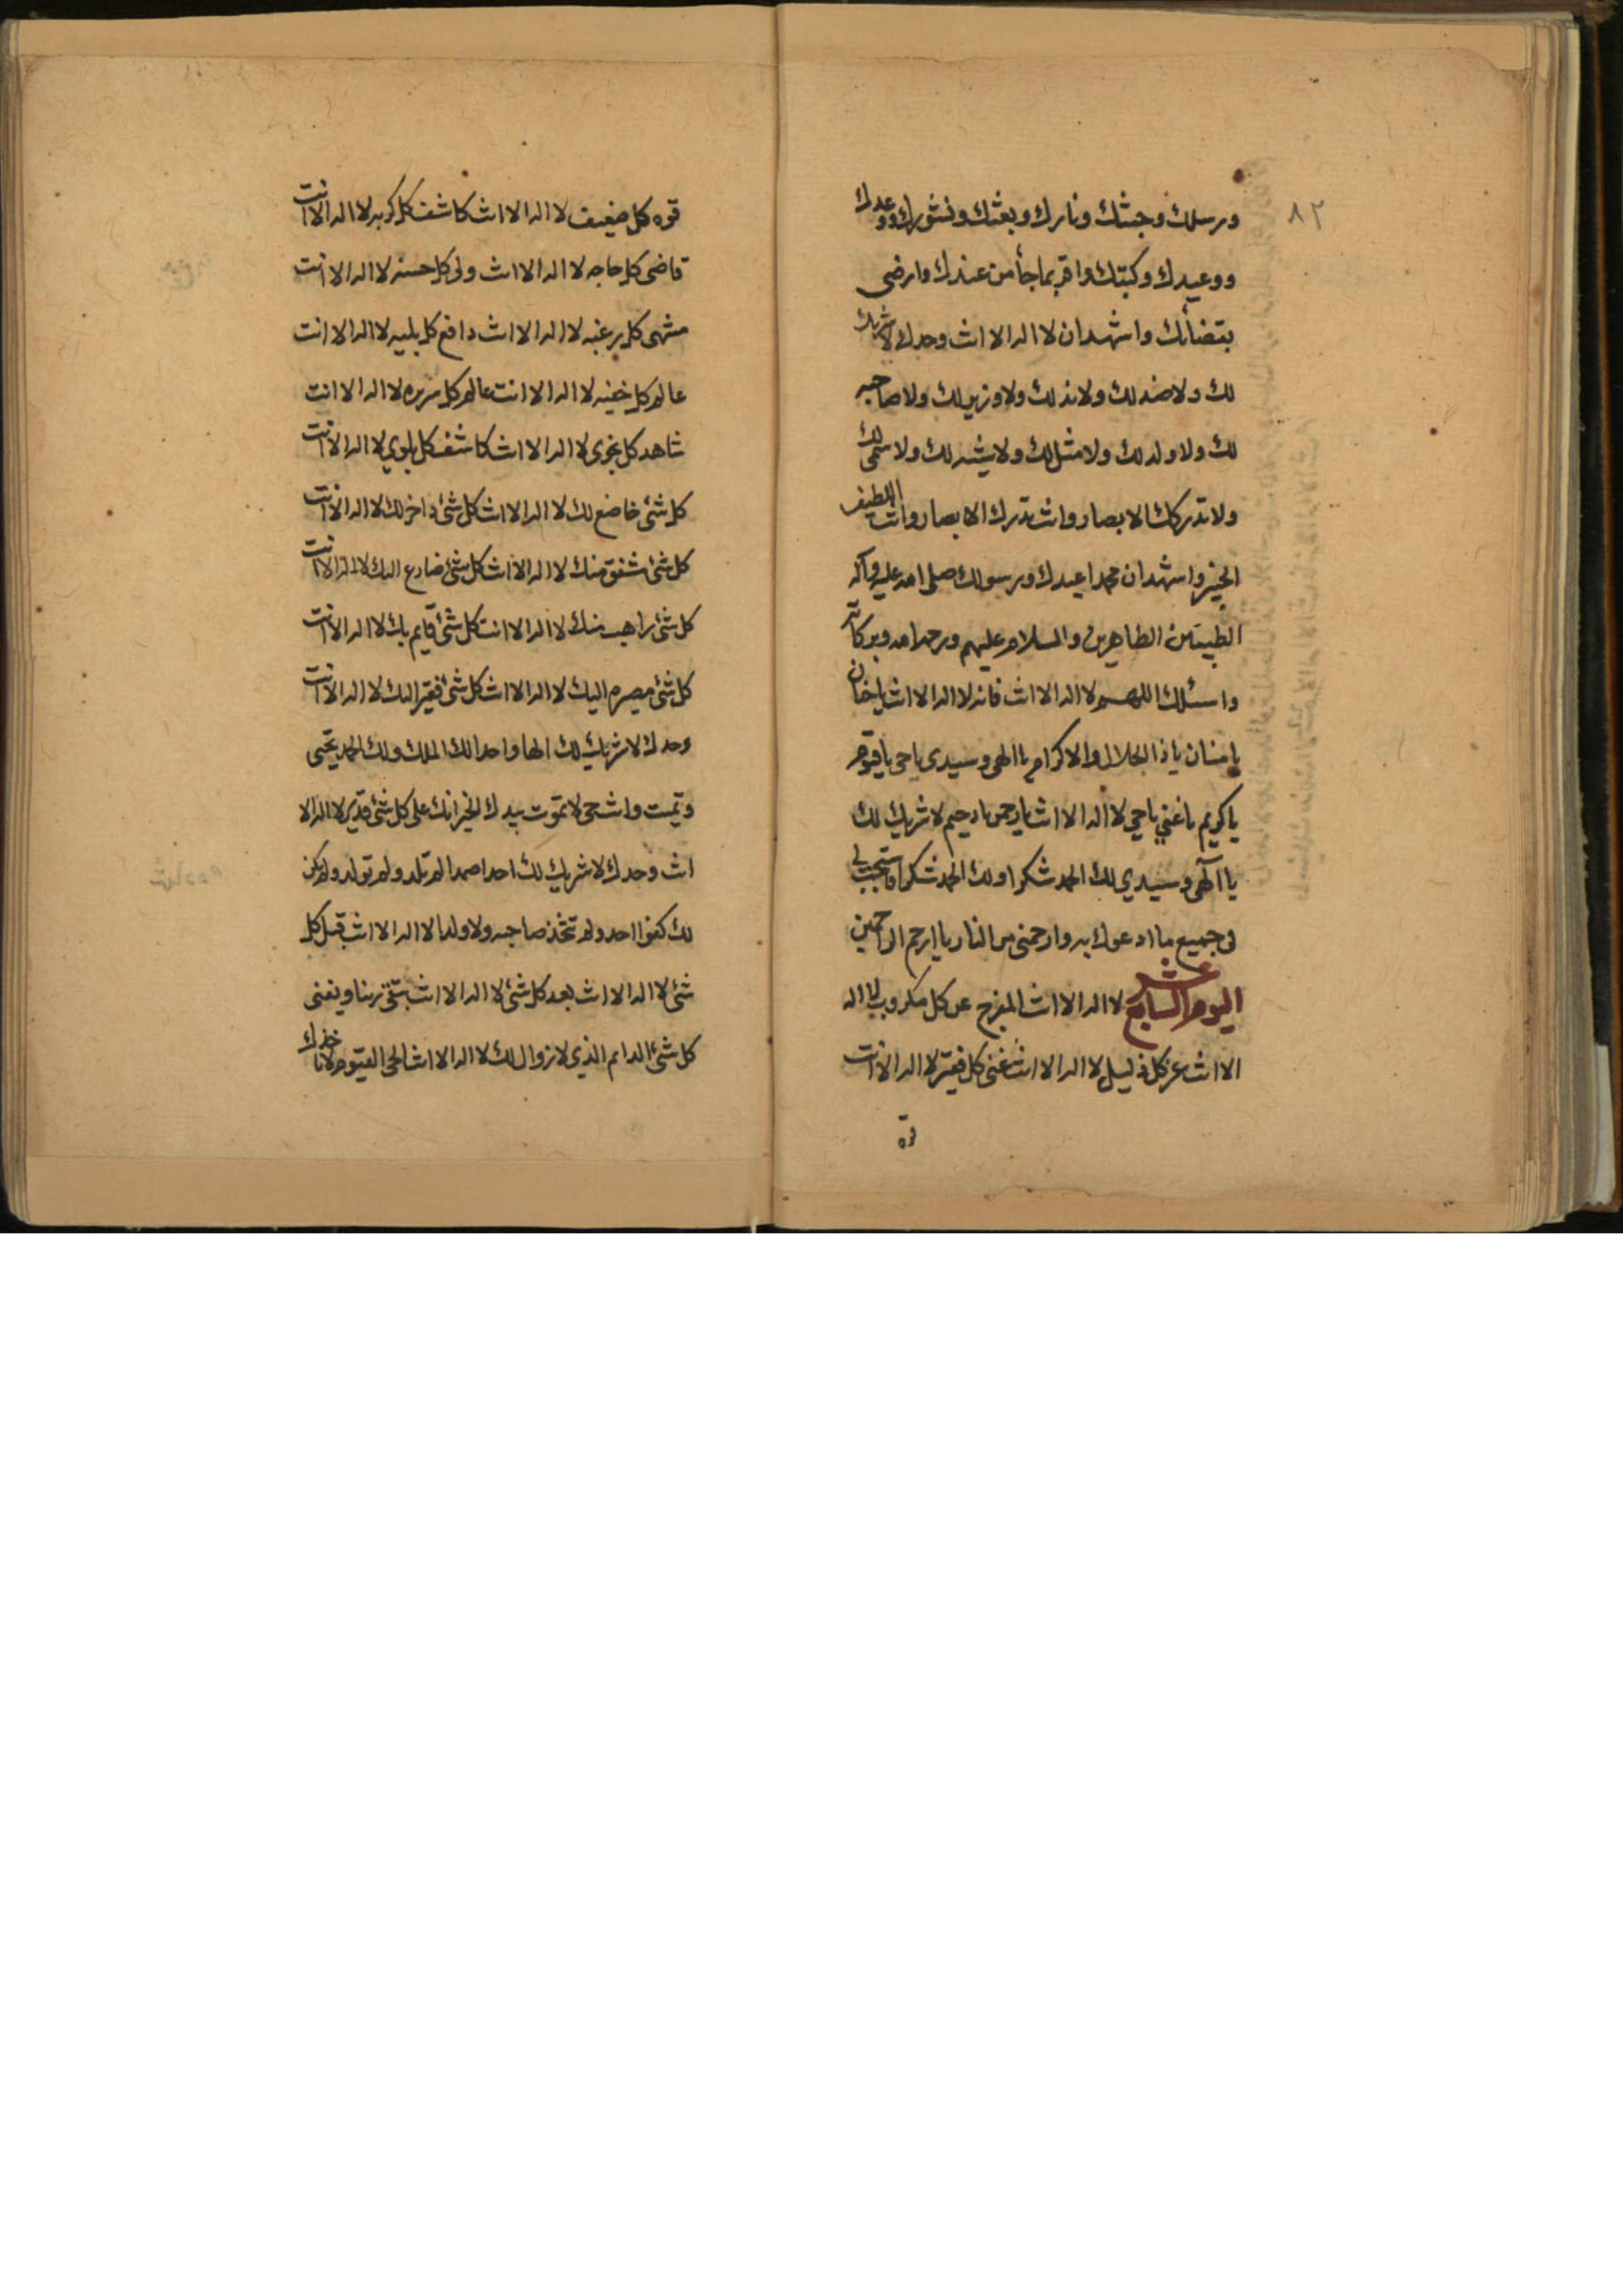 ٨٢
ورسلك وجنتك ونارك وبعثك ونشورك ووعدك
ووعيدك وكتبك واقر بما جاٴ من عندك وارضى
بقضاٴئك واشهد ان لا اله الا انت وحدك لا شريك
لك ولا ضد لك ولا ند لك ولا وزير لك ولا صاحبه
لك ولا ولد لك ولا مثل لك ولا شبه لك ولا سمى لك
ولا تدركك الابصار وانت تدرك الابصار وانت اللطيف
الخبير واشهد ان محمدا عبدك ورسولك صلى الله عليه وآله
الطيبين الطاهرين والسلام عليهم ورحمة الله وبركاته
واسئلك اللهم لا اله الا انت فانه لا اله الا انت يا حنان
يا منان يا ذا الجلال والاكرام يا الهى وسيدى يا حى يا قيوم
يا كريم يا غني يا حي لا اله الا انت يا رحمن يا رحيم لا شريك لك
يا الهى وسيدي لك الحمد شكرا ولك الحمد شكرا فاستجب لى
فى جميع ما ادعوك به وارحمنى من النار يا ارحم الراحمين
اليوم السابع عشر لا اله الا انت المفرج عن كل مكروب لا اله
الا انت عز كل ذليل لا اله الا انت غنى كل فقير لا اله الا انت
قوه
قوه كل ضعيف لا اله الا انت كاشف كل كربه لا اله الا انت
قاضى كل حاجه لا اله الا انت ولى كل حسنه لا اله الا انت
منتهى كل رغبه لا اله الا انت دافع كل بليه لا اله الا انت
عالم كل خفيه لا اله الا انت عالم كل سريره لا اله الا انت
شاهد كل نجوى لا اله الا انت كاشف كل بلوي لا اله الا انت
كل شئ خاضع لك لا اله الا انت كل شئ داخر لك لا اله الا انت
كل شئ مشفق منك لا اله الا انت كل شئ ضارع اليك لا اله الا انت
كل شئ راهب منك لا اله الا انت كل شئ قايم بك لا اله الا انت
كل شئ مصيره اليك لا اله الا انت كل شئ فقير اليك لا اله الا انت
وحدك لا شريك لك الها واحدا لك الملك ولك الحمد تحيى
وتميت وانت حى لا تموت بيدك الخير انك على كل شئ قدير لا اله الا
انت وحدك لا شريك لك احدا صمدا لم تلد ولم تولد ولم يكن
لك كفوا احد ولم تتخذ صاحبه ولا ولدا لا اله الا انت قبل كل
شئ لا اله الا انت بعد كل شئ لا اله الا انت تبقى ربنا ويفنى
كل شئ الدائم الذي لا زوال لك لا اله الا انت الحى القيوم لا تاخذك